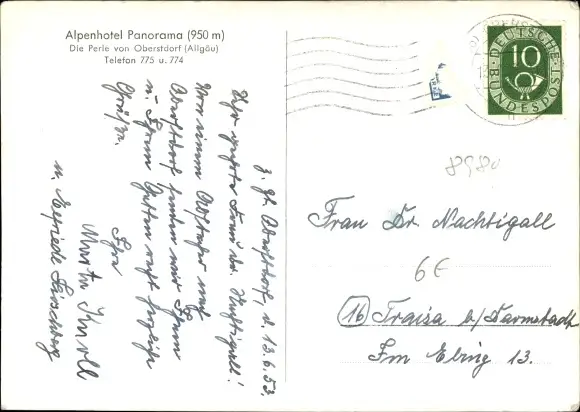 Alpenhotel Panorama (950 m)
Die Perle von Oberstdorf (Allgäu)
Telefon 775 u. 774
z. Zt. Oberstdorf, d. 13.6.53.
Sehr geehrte Frau Dr. Nachtigall!
Von einem Abstecher nach
Oberstdorf senden wir Ihnen
u. Ihrem Gatten recht herzliche
Grüße.
Ihre
Marta Knoll
u. Elfriede Hirschberg
10
DEUTSCHE
BUNDESPOST
8980
Frau Dr. Nachtigall
6€
16 Traisa b/Darmstadt
Im Elsing 13.